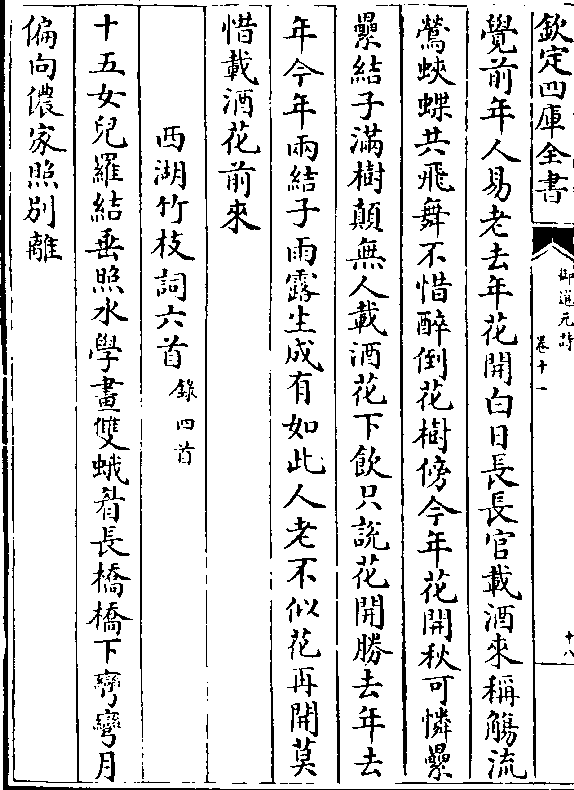 欽定四庫全書
御選元詩
卷十一
十八
覺前年人易老去年花開白日長長官載酒來稱觴流
鶯蛺蝶共飛舞不惜醉倒花樹傍今年花開秋可憐纍
纍結子滿樹顛無人載酒花下飲只說花開勝去年去
年今年兩結子雨露生成有如此人老不似花再開莫
惜載酒花前來
西湖竹枝詞六首 錄四首
十五女兒羅結垂照水學畫雙蛾眉長橋橋下彎彎月
偏向儂家照別離